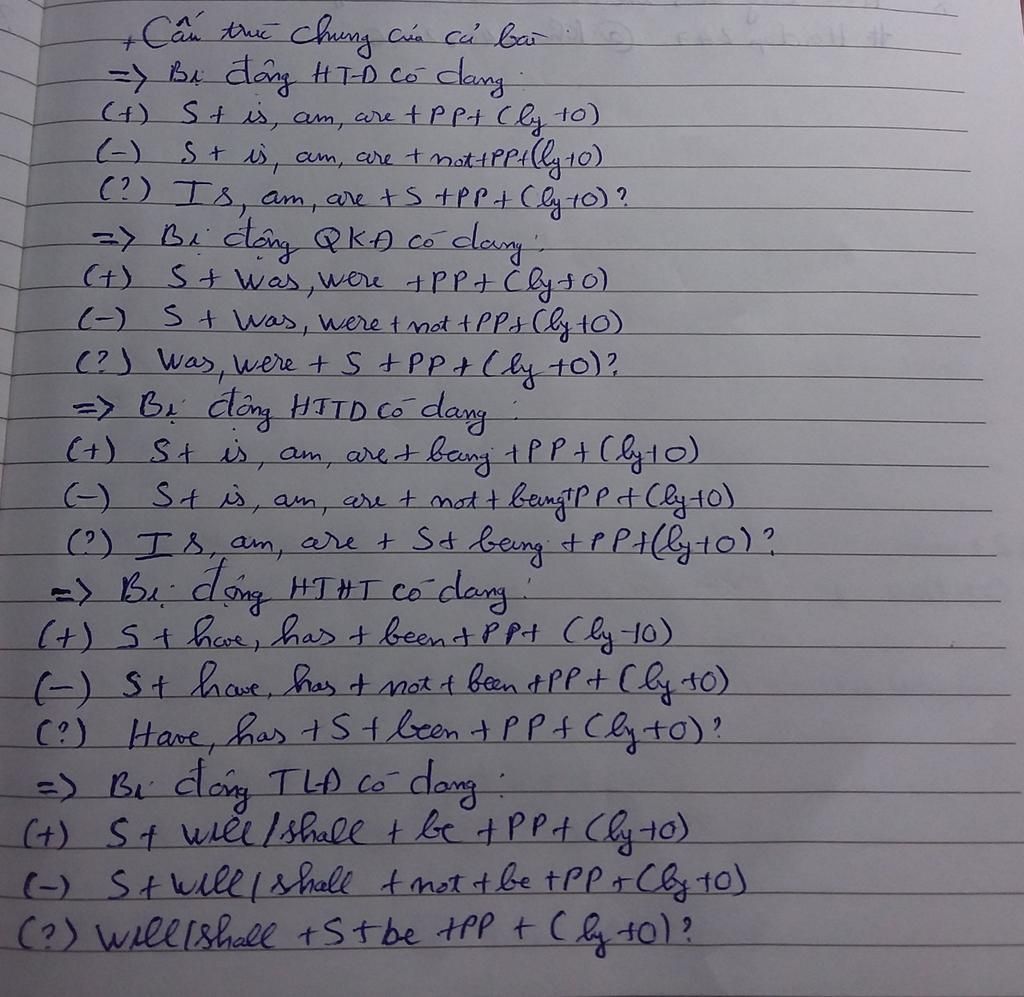 + Cấu trúc chung của cả bài
=> Bị động HTĐ có dạng:
(+) S + is, am, are + PP + (by + O)
(-) S + is, am, are + not + PP + (by + O)
(?) Is, am, are + S + PP + (by + O)?
=> Bị động QKĐ có dạng:
(+) S + Was, were + PP + (by + O)
(-) S + Was, were + not + PP + (by + O)
(?) Was, were + S + PP + (by + O)?
=> Bị động HTTD có dạng:
(+) S + is, am, are + being + PP + (by + O)
(-) S + is, am, are + not + being + PP + (by + O)
(?) Is, am, are + S + being + PP + (by + O)?
=> Bị động HTHT có dạng:
(+) S + have, has + been + PP + (by + O)
(-) S + have, has + not + been + PP + (by + O)
(?) Have, has + S + been + PP + (by + O)?
=> Bị động TLĐ có dạng:
(+) S + will/shall + be + PP + (by + O)
(-) S + will/shall + not + be + PP + (by + O)
(?) Will/shall + S + be + PP + (by + O)?